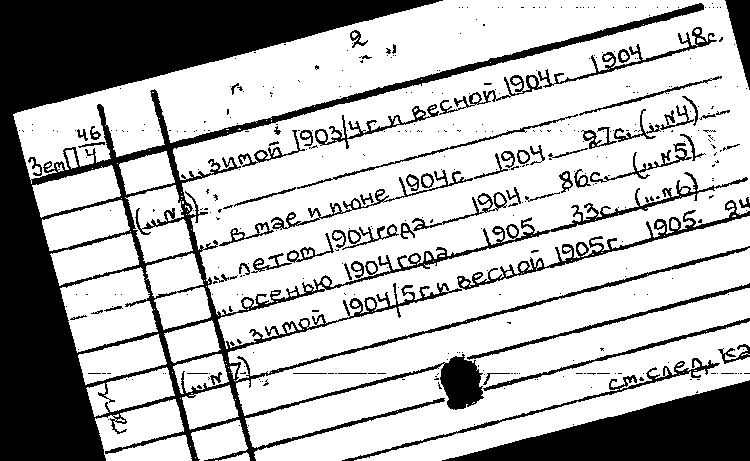 2
46
Зем П 4
... зимой 1903/4 г. и весной 1904 г. 1904 48 с.
(...№3)
... в мае и июне 1904 г. 1904. 27 с. (...№4)
... летом 1904 года. 1904. 86 с. (...№5)
... осенью 1904 года. 1905. 33 с. (...№6)
... зимой 1904/5 г. и весной 1905 г. 1905. 24
(...№7)
см. след. ка